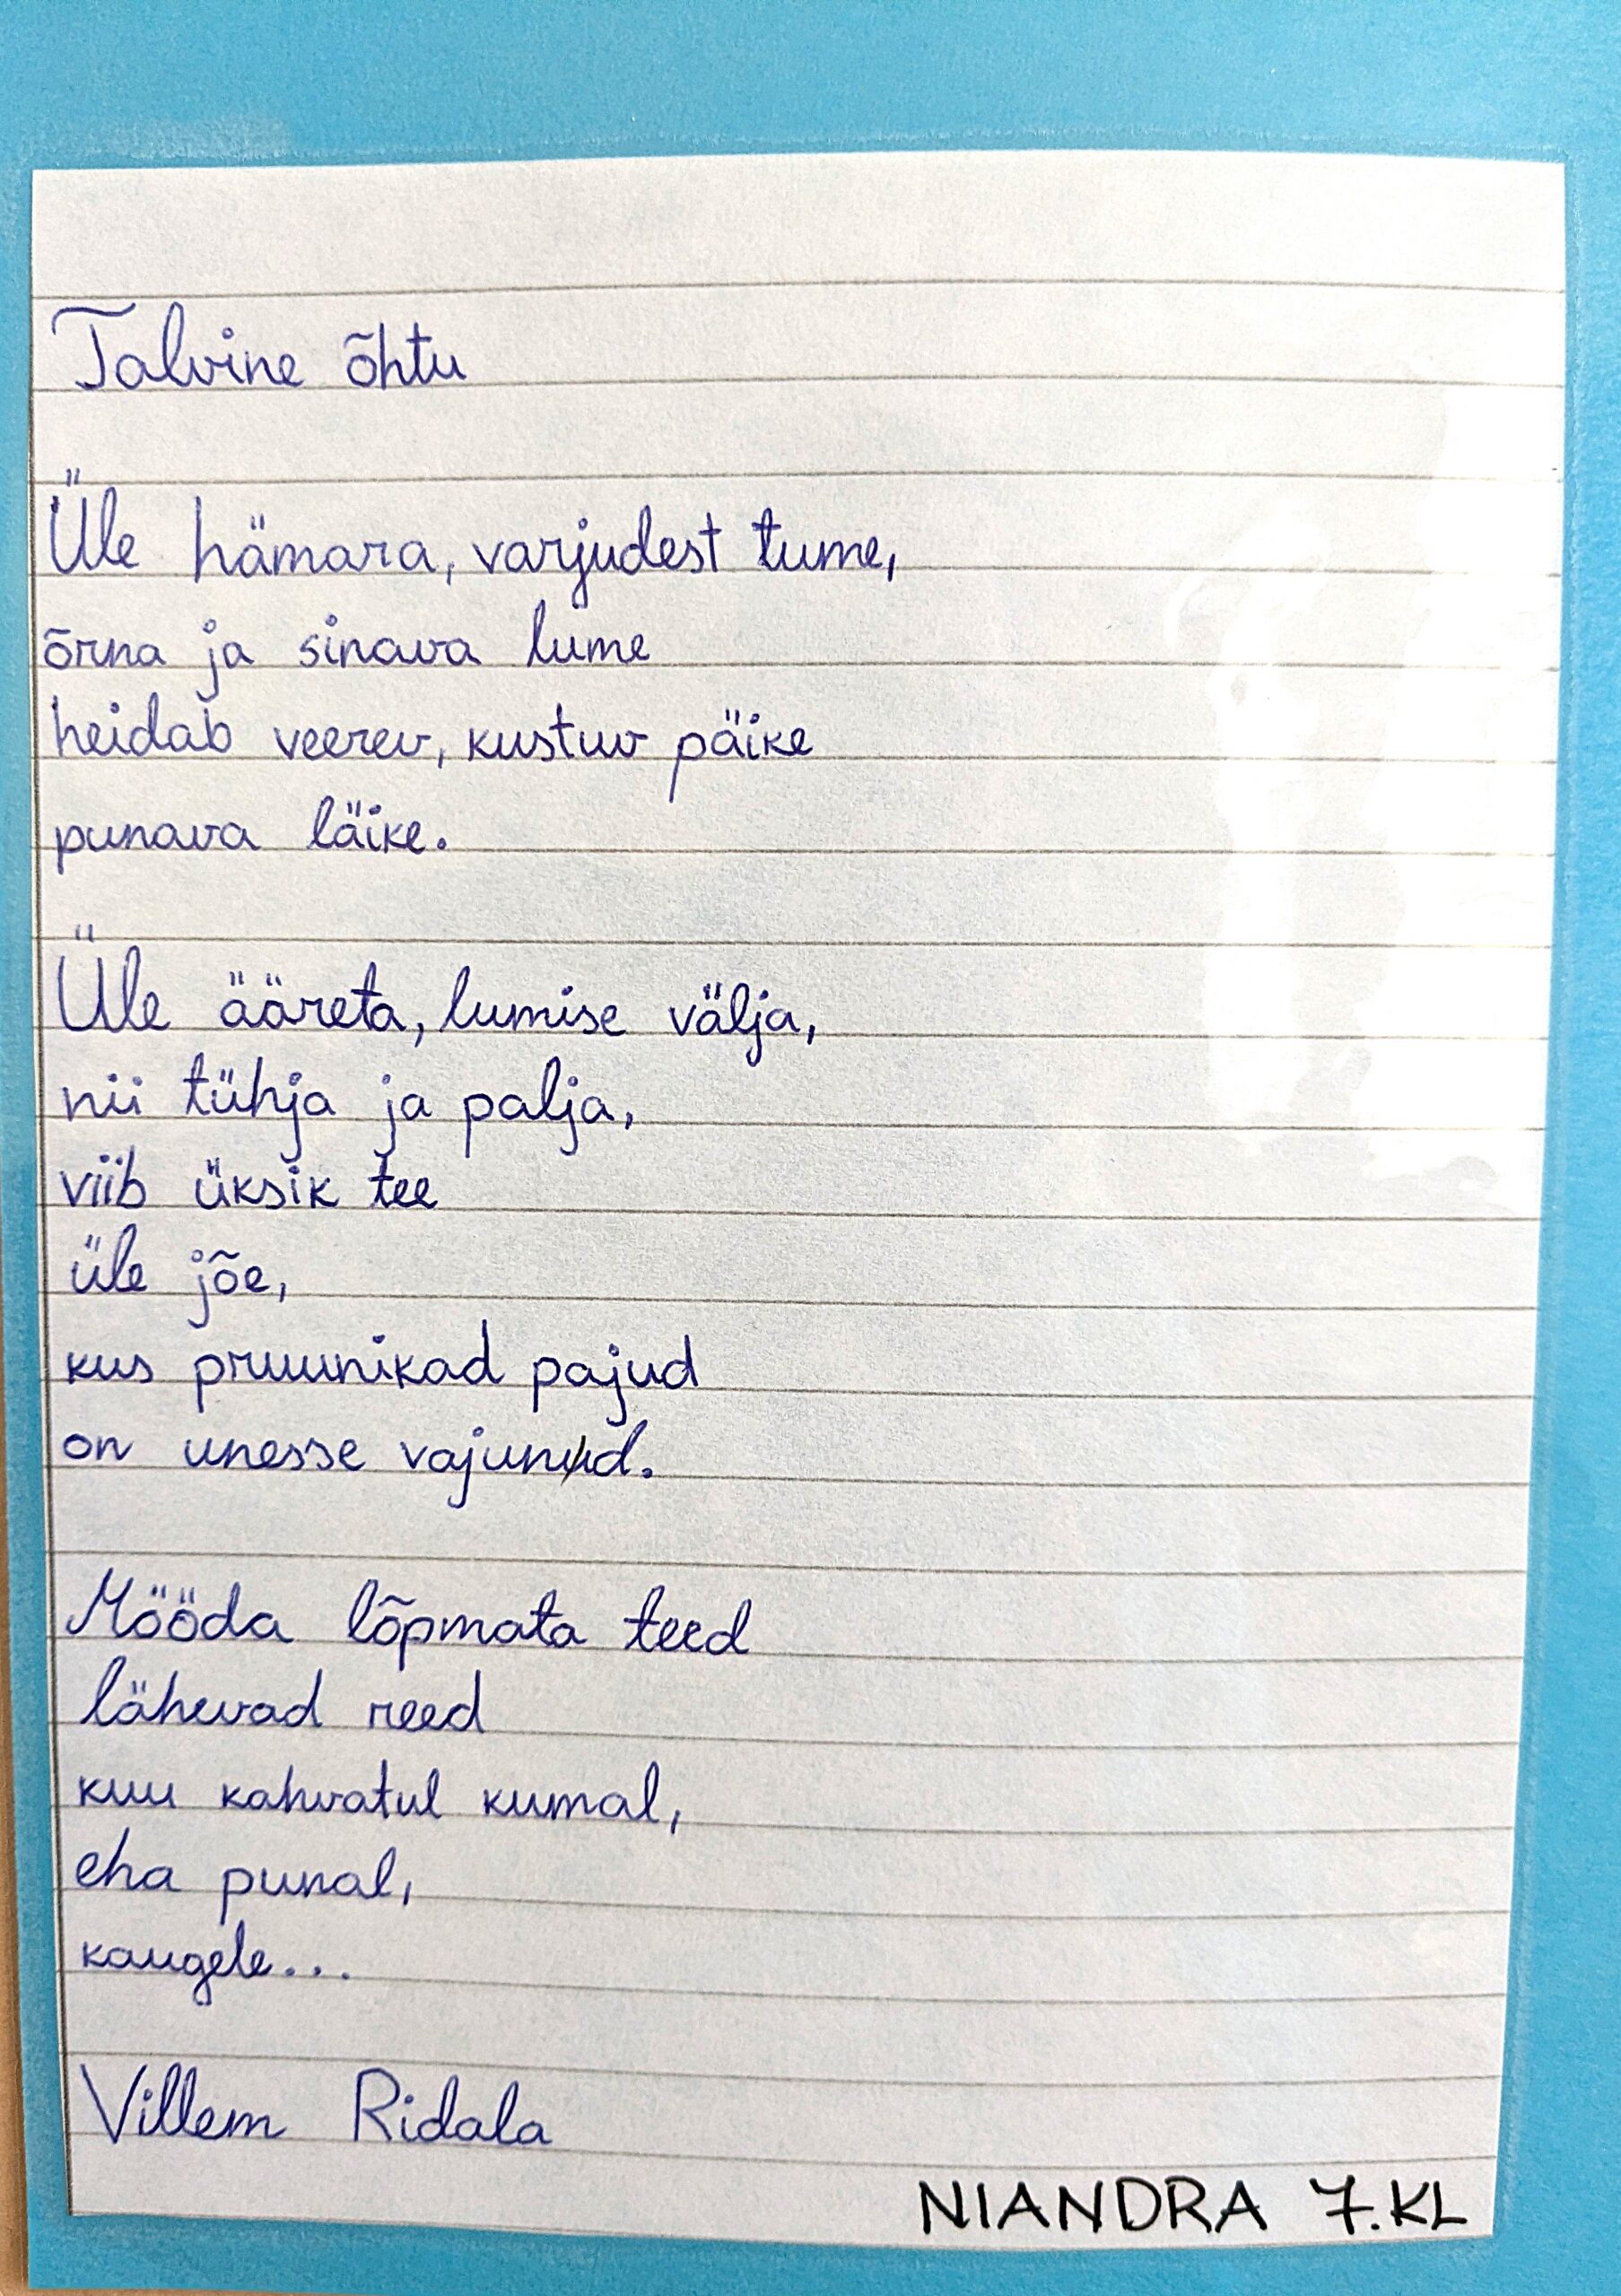 Talvine õhtu
Üle hämara, varjudest tume,
õrna ja sinava lume
heidab veerev, kustuv päike
punava läike.
Üle ääreta, lumise välja,
nii tühja ja palja,
viib üksik tee
üle jõe,
kus pruunikad pajud
on unesse vajunud.
Mööda lõpmata teed
lähevad reed
kuu kahvatul kumal,
eha punal,
kaugele...
Villem Ridala
NIANDRA 7.KL